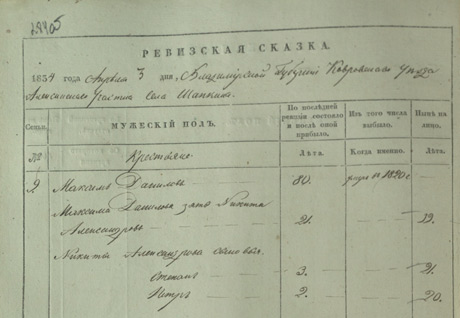 РЕВИЗСКАЯ СКАЗКА.
1834 года Апреля 3 дня, Владимірской Губерніи Ковровскаго уезда
Алексинскаго участка Села Шапкина
Семьи.
МУЖЕСКІЙ ПОЛЪ.
По последней ревизіи состояло и после оной прибыло.
Изъ того числа выбыло.
Ныне на лицо.
№
Крестьяне
Лета.
Когда именно.
Лета.
9. Максимъ Даниловъ 80. умре въ 1820 г —
Максима Данилова зять Никита
Александровъ 21. 39.
Никиты Александрова сыновья.
Степанъ 3. 21.
Петръ 2. 20.